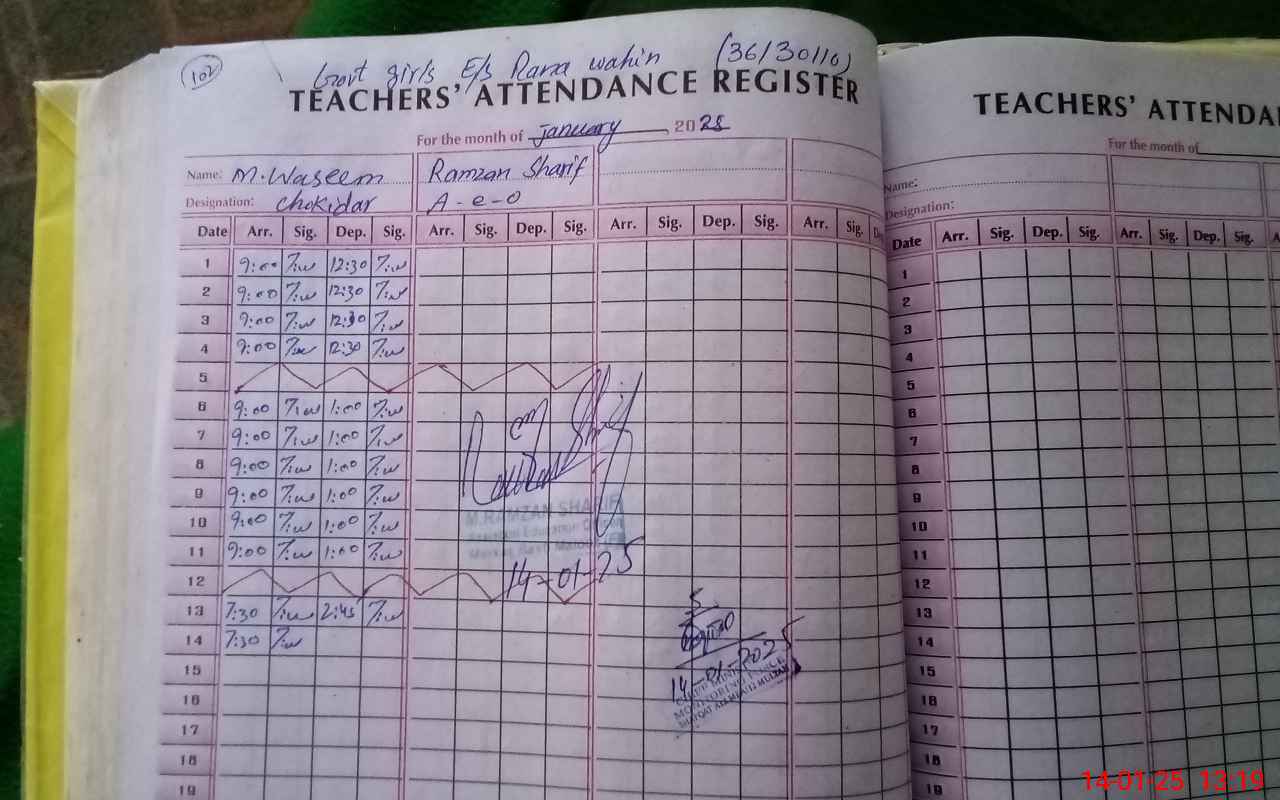 102
Govt girls E/s Rana wahin (36/30110)
TEACHERS' ATTENDANCE REGISTER
For the month of January, 2025
Name: M. Waseem Ramzan Sharif
Designation: Chokidar A-e-o
Date Arr. Sig. Dep. Sig. Arr. Sig. Dep. Sig. Arr. Sig. Dep. Sig. Arr. Sig.
1 9:00 7:w 12:30 7:w
2 9:00 7:w 12:30 7:w
3 9:00 7:w 12:30 7:w
4 9:00 7:w 12:30 7:w
5
6 9:00 7:w 1:00 7:w
7 9:00 7:w 1:00 7:w
8 9:00 7:w 1:00 7:w
9 9:00 7:w 1:00 7:w
10 9:00 7:w 1:00 7:w
11 9:00 7:w 1:00 7:w
12
13 7:30 7:w 2:45 7:w
14 7:30 7:w
15
16
17
18
19
M.RAMZAN SHARIF
Assistant Education Officer
14-01-25
14-01-2025
MONITORING FORCE
TEACHERS' ATTENDA
For the month of
Name:
Designation:
Date Arr. Sig. Dep. Sig. Arr. Sig. Dep. Sig.
1
2
3
4
5
6
7
8
9
10
11
12
13
14
15
16
17
18
19
14-01-25 13:19